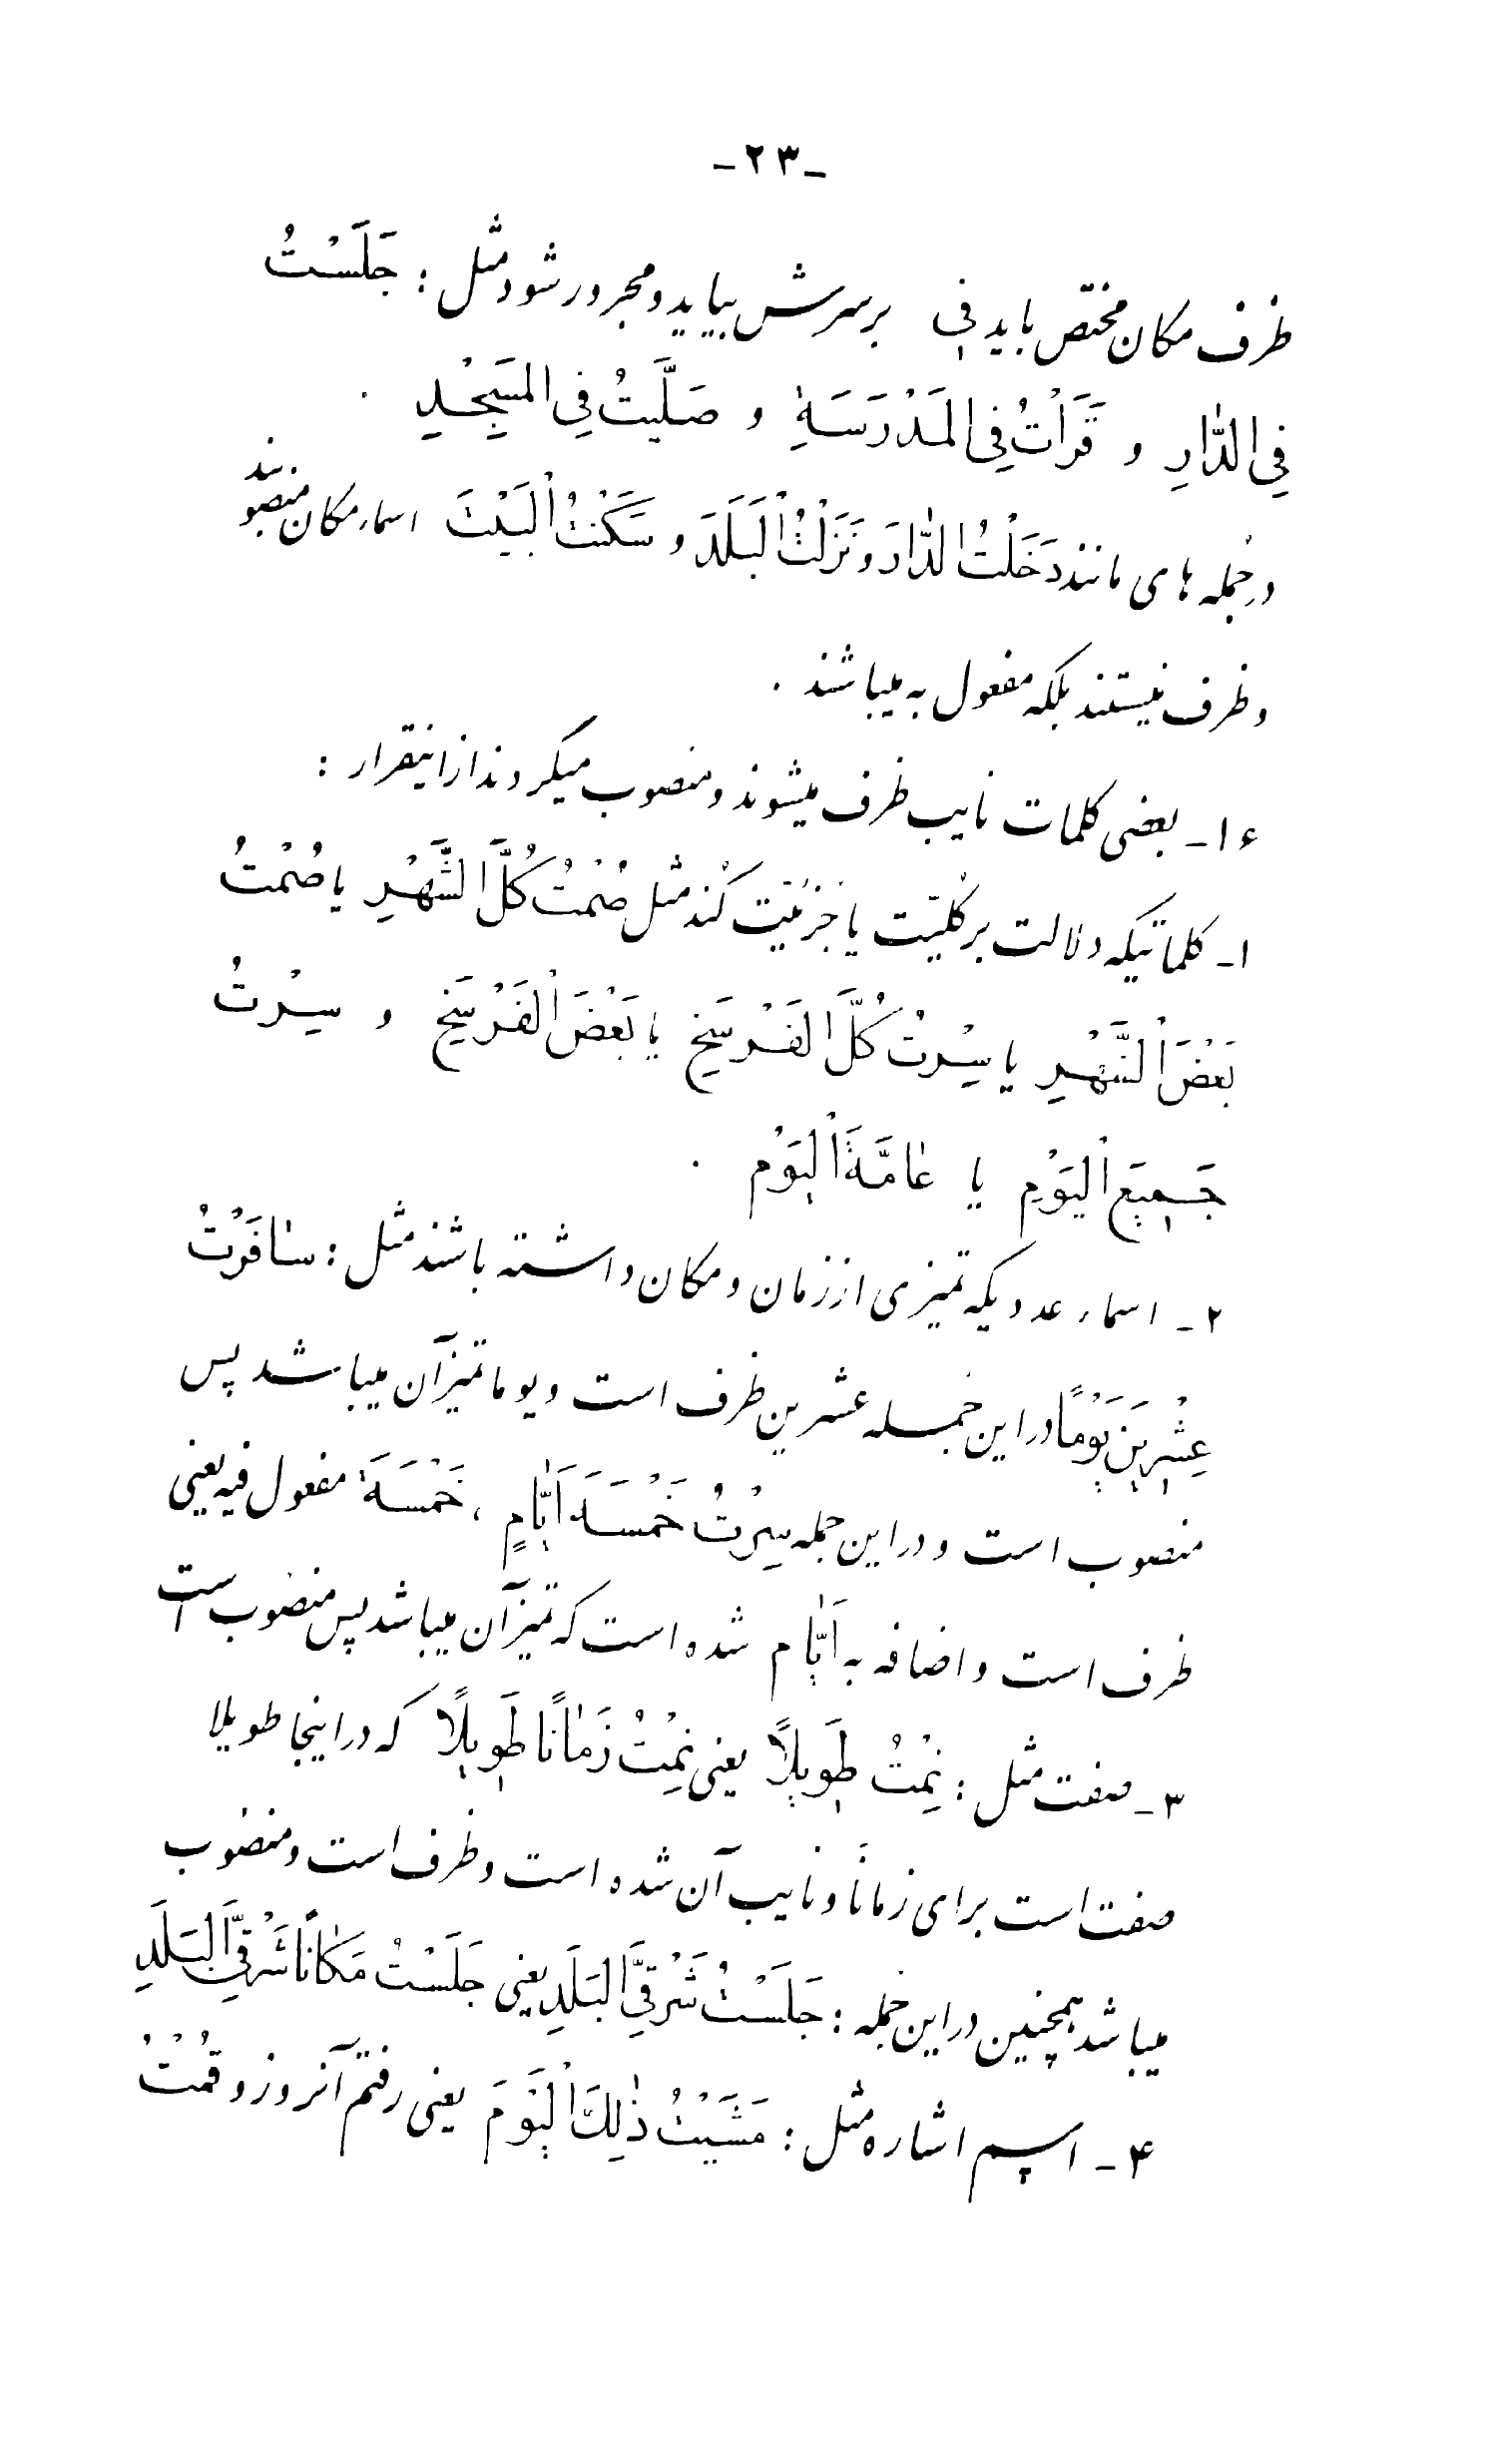 -۲۳-
ظرف مکان مختص باید فی برسرش بیاید و مجرور شود مثل : جَلَسْتُ
فِی الدّٰارِ و قَرَأتُ فِی المَدْرَسَةِ و صَلَّیتُ فِی المَسْجِدِ .
در جمله های مانند دَخَلْتُ الدّٰارَ و نَزَلْتُ الْبَلَدَ و سَکَنْتُ الْبَیْتَ اسماء مکان منصوبند
و ظرف نیستند بلکه مفعول به میباشند .
۱۶- بعضی کلمات نایب ظرف میشوند و منصوب میگردند از اینقرار :
۱- کلماتیکه دلالت بر کُلّیّت یا جُزئیّت کند مثل صُمْتُ کُلَّ الشَّهْرِ یا صُمْتُ
بَعْضَ الشَّهْرِ یا سِرْتُ کُلَّ الفَرْسَخِ یا بَعْضَ الْفَرْسَخِ و سِرْتُ
جَمِیعَ الْیَوْمِ یا عٰامَّةَ الْیَوْم .
۲- اسماء عددیکه تمیزی از زمان و مکان داشته باشند مثل : سٰافَرْتُ
عِشْرِینَ یَوْمًا در این جمله عشرین ظرف است و یوما تمیز آن میباشد پس
منصوب است و در این جمله سِرْتُ خَمْسَةَ اَیّٰامٍ ، خَمْسَةَ مفعول فیه یعنی
ظرف است و اضافه به اَیّٰام شده است که تمیز آن میباشد پس منصوب است
۳- صفت مثل : نِمْتُ طَوِیلاً یعنی نِمْتُ زَمٰانًا طَوِیلًا که در اینجا طویلا
صفت است برای زماناً و نایب آن شده است و ظرف است و منصوب
میباشد همچنین در این جمله : جَلَسْتُ شَرْقِیَّ البَلَدِ یعنی جَلَسْتُ مَکٰانًا شَرْقِیَّ البَلَدِ
۴- اسم اشاره مثل : مَشَیْتُ ذٰلِکَ الْیَوْمَ یعنی رفتم آنروز و قُمْتُ